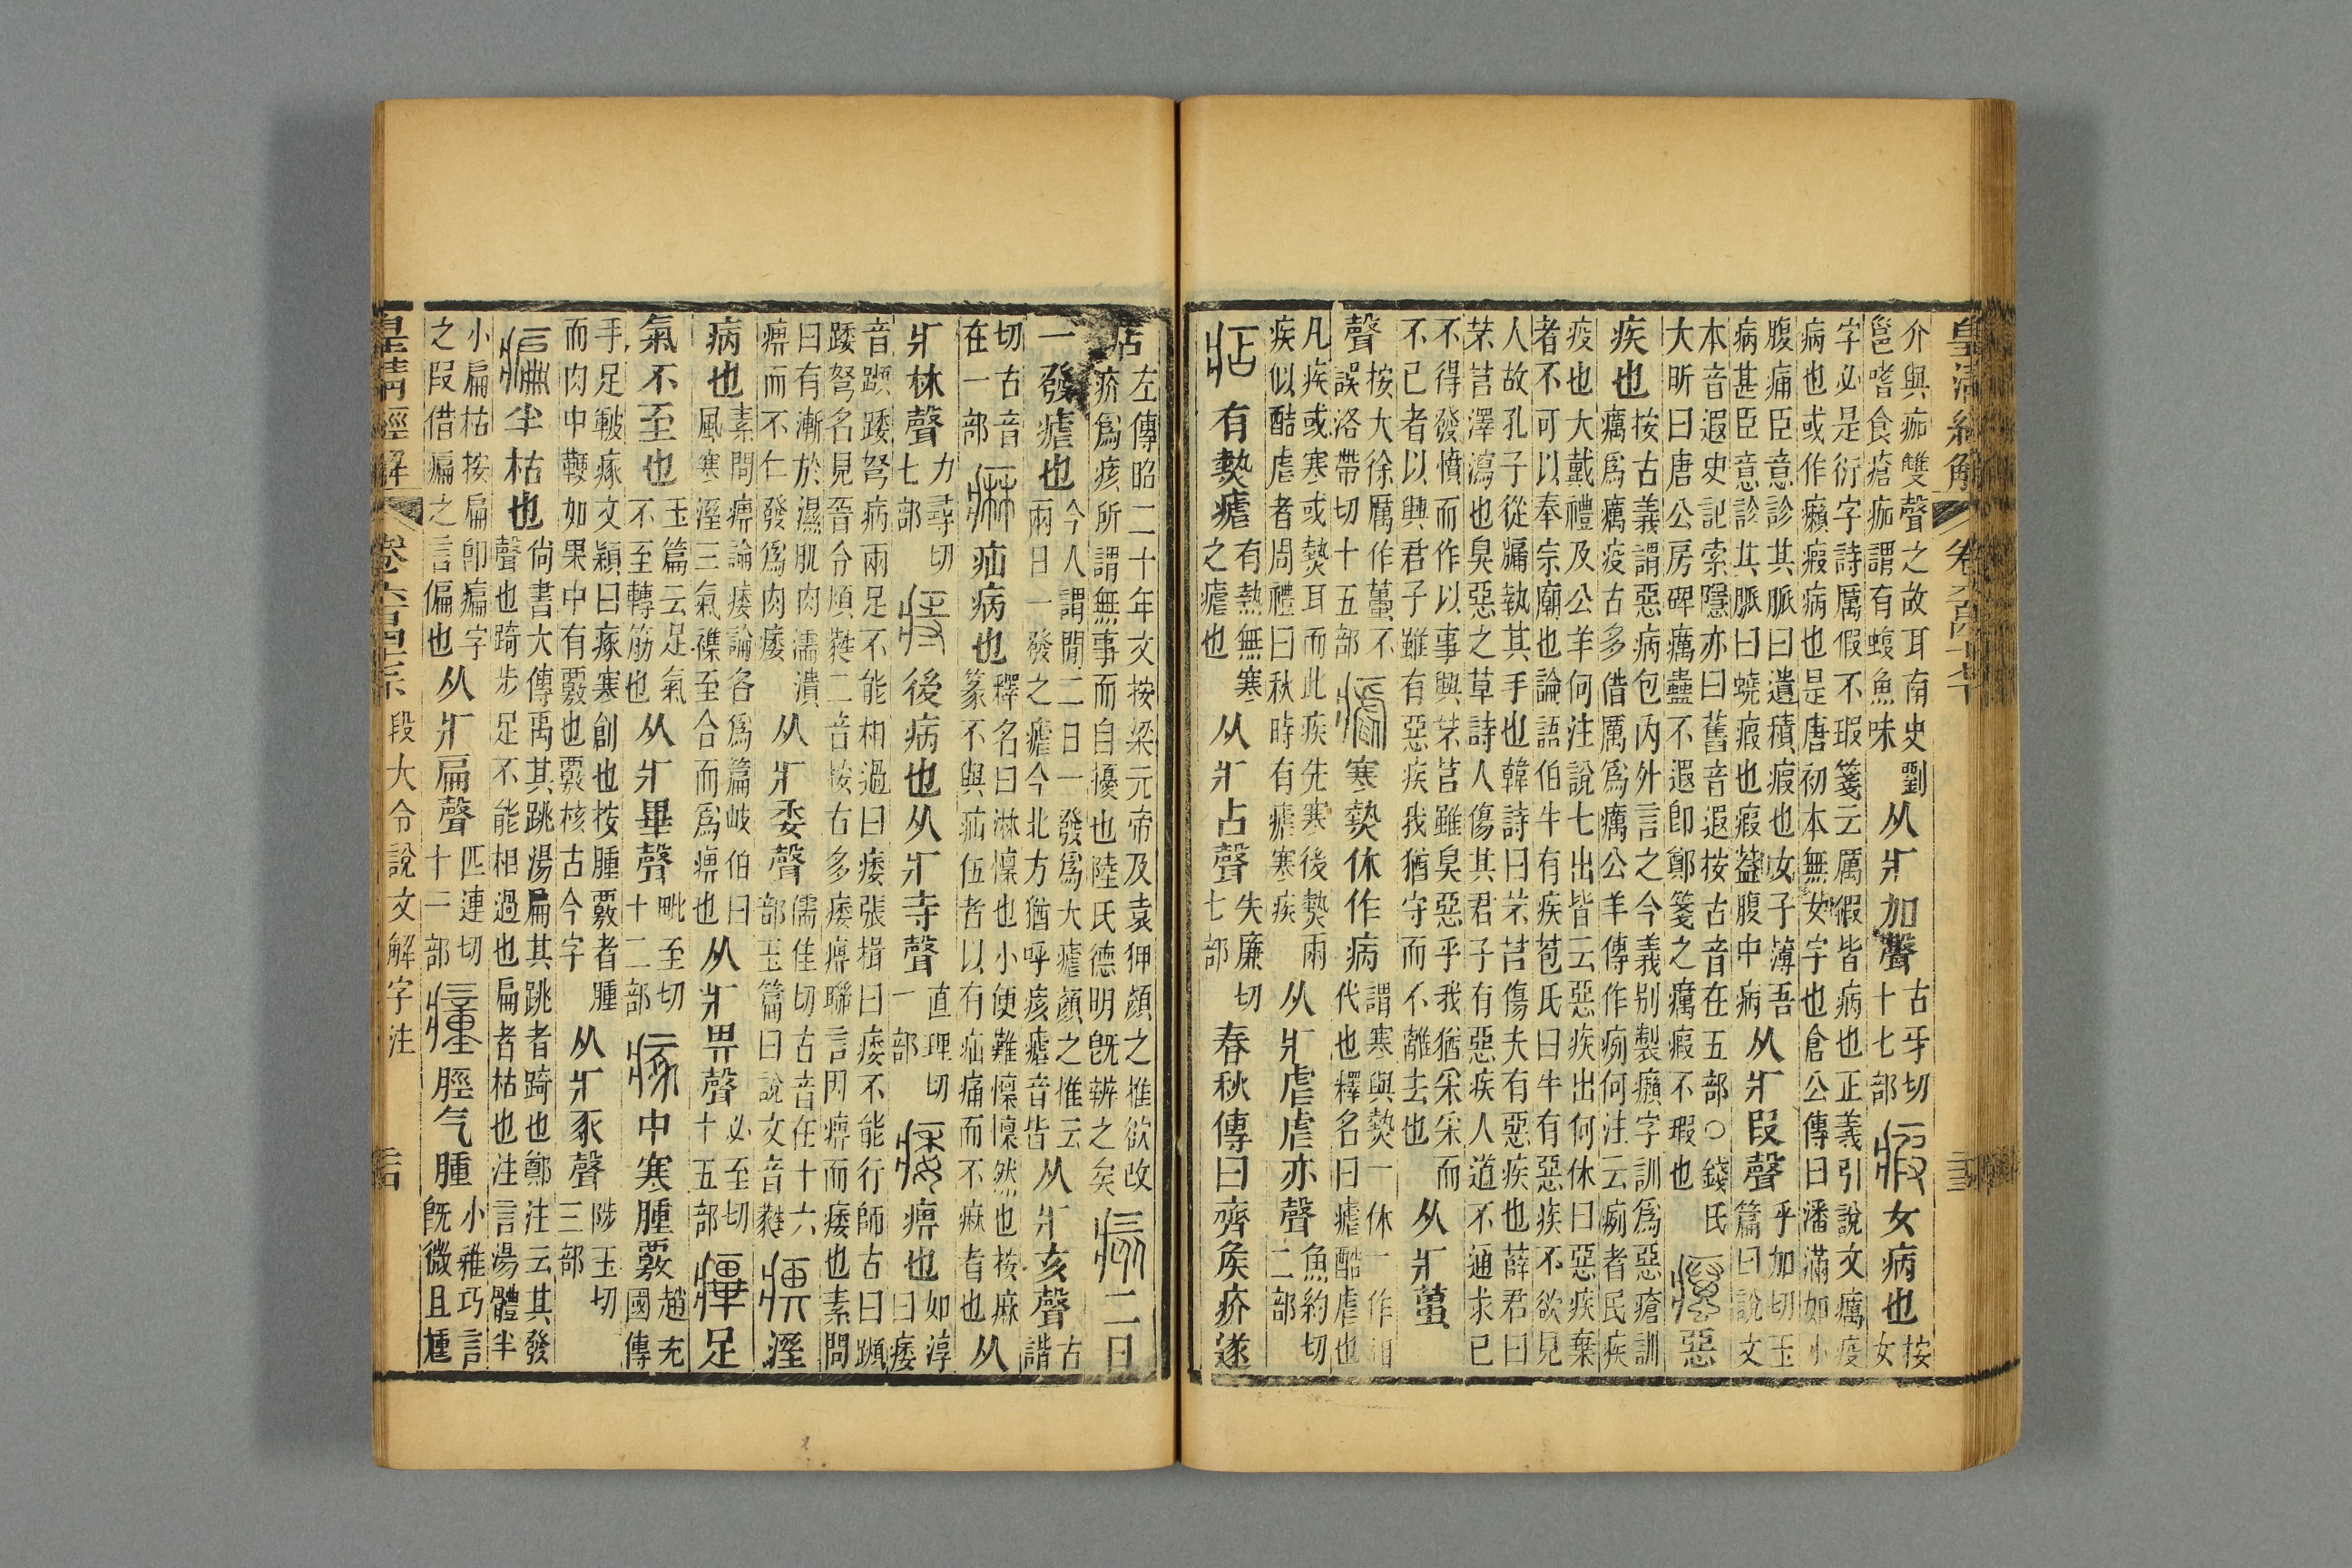 皇清經解 卷六百四十七
介與痂雙聲之故耳南史劉
邕嗜食瘡痂謂有蝮魚味
从疒加聲
古牙切
十七部
瘕女病也
按
女
字必是衍字詩厲假不瑕箋云厲假皆病也正義引說文癘疫
病也或作癩瘕病也是唐初本無女字也倉公傳曰潘滿如小
腹痛臣意診其脈曰遺積瘕也女子薄吾
病甚臣意診其脈曰蟯瘕也瘕葢腹中病
从疒叚聲
乎加切玉
篇曰說文
本音遐史記索隱亦曰舊音遐按古音在五部○錢氏
大昕曰唐公房碑癘蠱不遐卽鄭箋之癘瘕不瑕也
癘惡
疾也
按古義謂惡病包內外言之今義别製癩字訓爲惡瘡訓
癘爲癘疫古多借厲爲癘公羊傳作㾐何注云㾐者民疾
疫也大戴禮及公羊何注說七出皆云惡疾出何休曰惡疾棄
者不可以奉宗廟也論語伯牛有疾苞氏曰牛有惡疾不欲見
人故孔子從牖執其手也韓詩曰芣苢傷夫有惡疾也薛君曰
芣苢澤瀉也臭惡之草詩人傷其君子有惡疾人道不通求已
不得發憤而作以事興芣苢雖臭惡乎我猶采采而
不已者以興君子雖有惡疾我猶守而不離去也
从疒蠆
聲
按大徐厲作蠆不
誤洛帶切十五部
瘧寒熱休作病
謂寒與熱一休一作相
代也釋名曰瘧酷虐也
凡疾或寒或熱耳而此疾先寒後熱兩
疾似酷虐者周禮曰秋時有瘧寒疾
从疒虐虐亦聲
魚約切
二部
痁有熱瘧
有熱無寒
之瘧也
从疒占聲
失廉切
七部
春秋傳曰齊矦疥遂
痁
左傳昭二十年文按梁元帝及袁狎顏之推欲改
疥爲痎所謂無事而自擾也陸氏德明旣辨之矣
痎二日
一發瘧也
今人謂閒二日一發爲大瘧顏之推云
兩日一發之瘧今北方猶呼痎瘧音皆
从疒亥聲
古
諧
切古音
在一部
痳疝病也
釋名曰淋懍也小便難懍懍然也按痳
篆不與疝伍者以有疝痛而不痳者也
从
疒林聲
力尋切
七部
痔後病也从疒寺聲
直理切
一部
痿痹也
如淳
曰痿
音踒弩病兩足不能相過曰痿張揖曰痿不能行師古曰
踒弩名見晉令頃蕤二音按古多痿痹聯言因痹而痿也素問
曰有漸於濕肌肉濡漬
痹而不仁發爲肉痿
从疒委聲
儒佳切古音在十六
部玉篇曰說文音蕤
痹溼
病也
素問痹論痿論各爲篇岐伯曰
風寒溼三氣襍至合而爲痹也
从疒畀聲
必至切
十五部
㿙足
氣不至也
玉篇云足氣
不至轉筋也
从疒畢聲
毗至切
十二部
瘃中寒腫覈
趙充
國傳
手足皸瘃文穎曰瘃寒創也按腫覈者腫
而肉中鞕如果中有覈也覈核古今字
从疒豖聲
陟玉切
三部
㾫半枯也
尙書大傳禹其跳湯扁其跳者踦也鄭注云其發
聲也踦步足不能相過也扁者枯也注言湯體半
小扁枯按扁卽㾫字
之叚借㾫之言偏也
从疒扁聲
匹連切
十二部
瘇脛气腫
小雅巧言
旣微且尰
皇清經解 卷六百四十七 段大令說文解字注